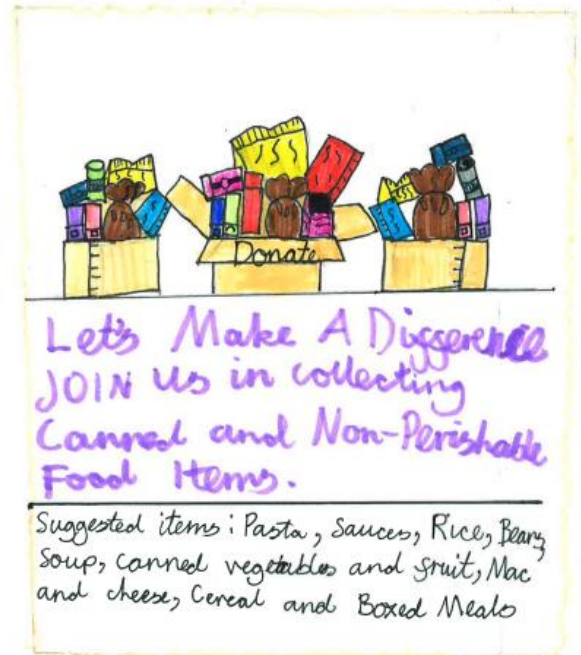 Donate
Let's Make A Difference
JOIN us in collecting
Canned and Non-Perishable
Food Items.
Suggested items: Pasta, Sauces, Rice, Beans,
Soup, canned vegetables and fruit, Mac
and cheese, Cereal and Boxed Meals